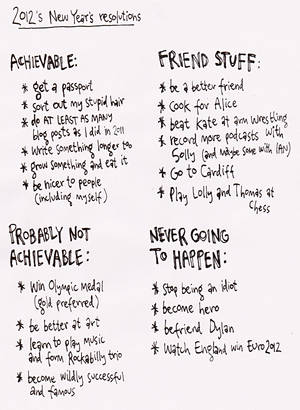 2012's New Year's resolutions
ACHIEVABLE:
* get a passport
* sort out my stupid hair
* do AT LEAST AS MANY
blog posts as I did in 2011
* Write something longer too
* grow something and eat it
* be nicer to people
(including myself)
FRIEND STUFF:
* be a better friend
* Cook for Alice
* beat Kate at arm wrestling
* record more podcasts with
Solly (and maybe some with IAN)
* Go to Cardiff
* Play Lolly and Thomas at
Chess
PROBABLY NOT
ACHIEVABLE:
* Win Olympic Medal
(gold preferred)
* be better at art
* learn to play music
and form Rockabilly trio
* become wildly successful
and famous
NEVER GOING
TO HAPPEN:
* stop being an idiot
* become hero
* befriend Dylan
* Watch England win Euro2012